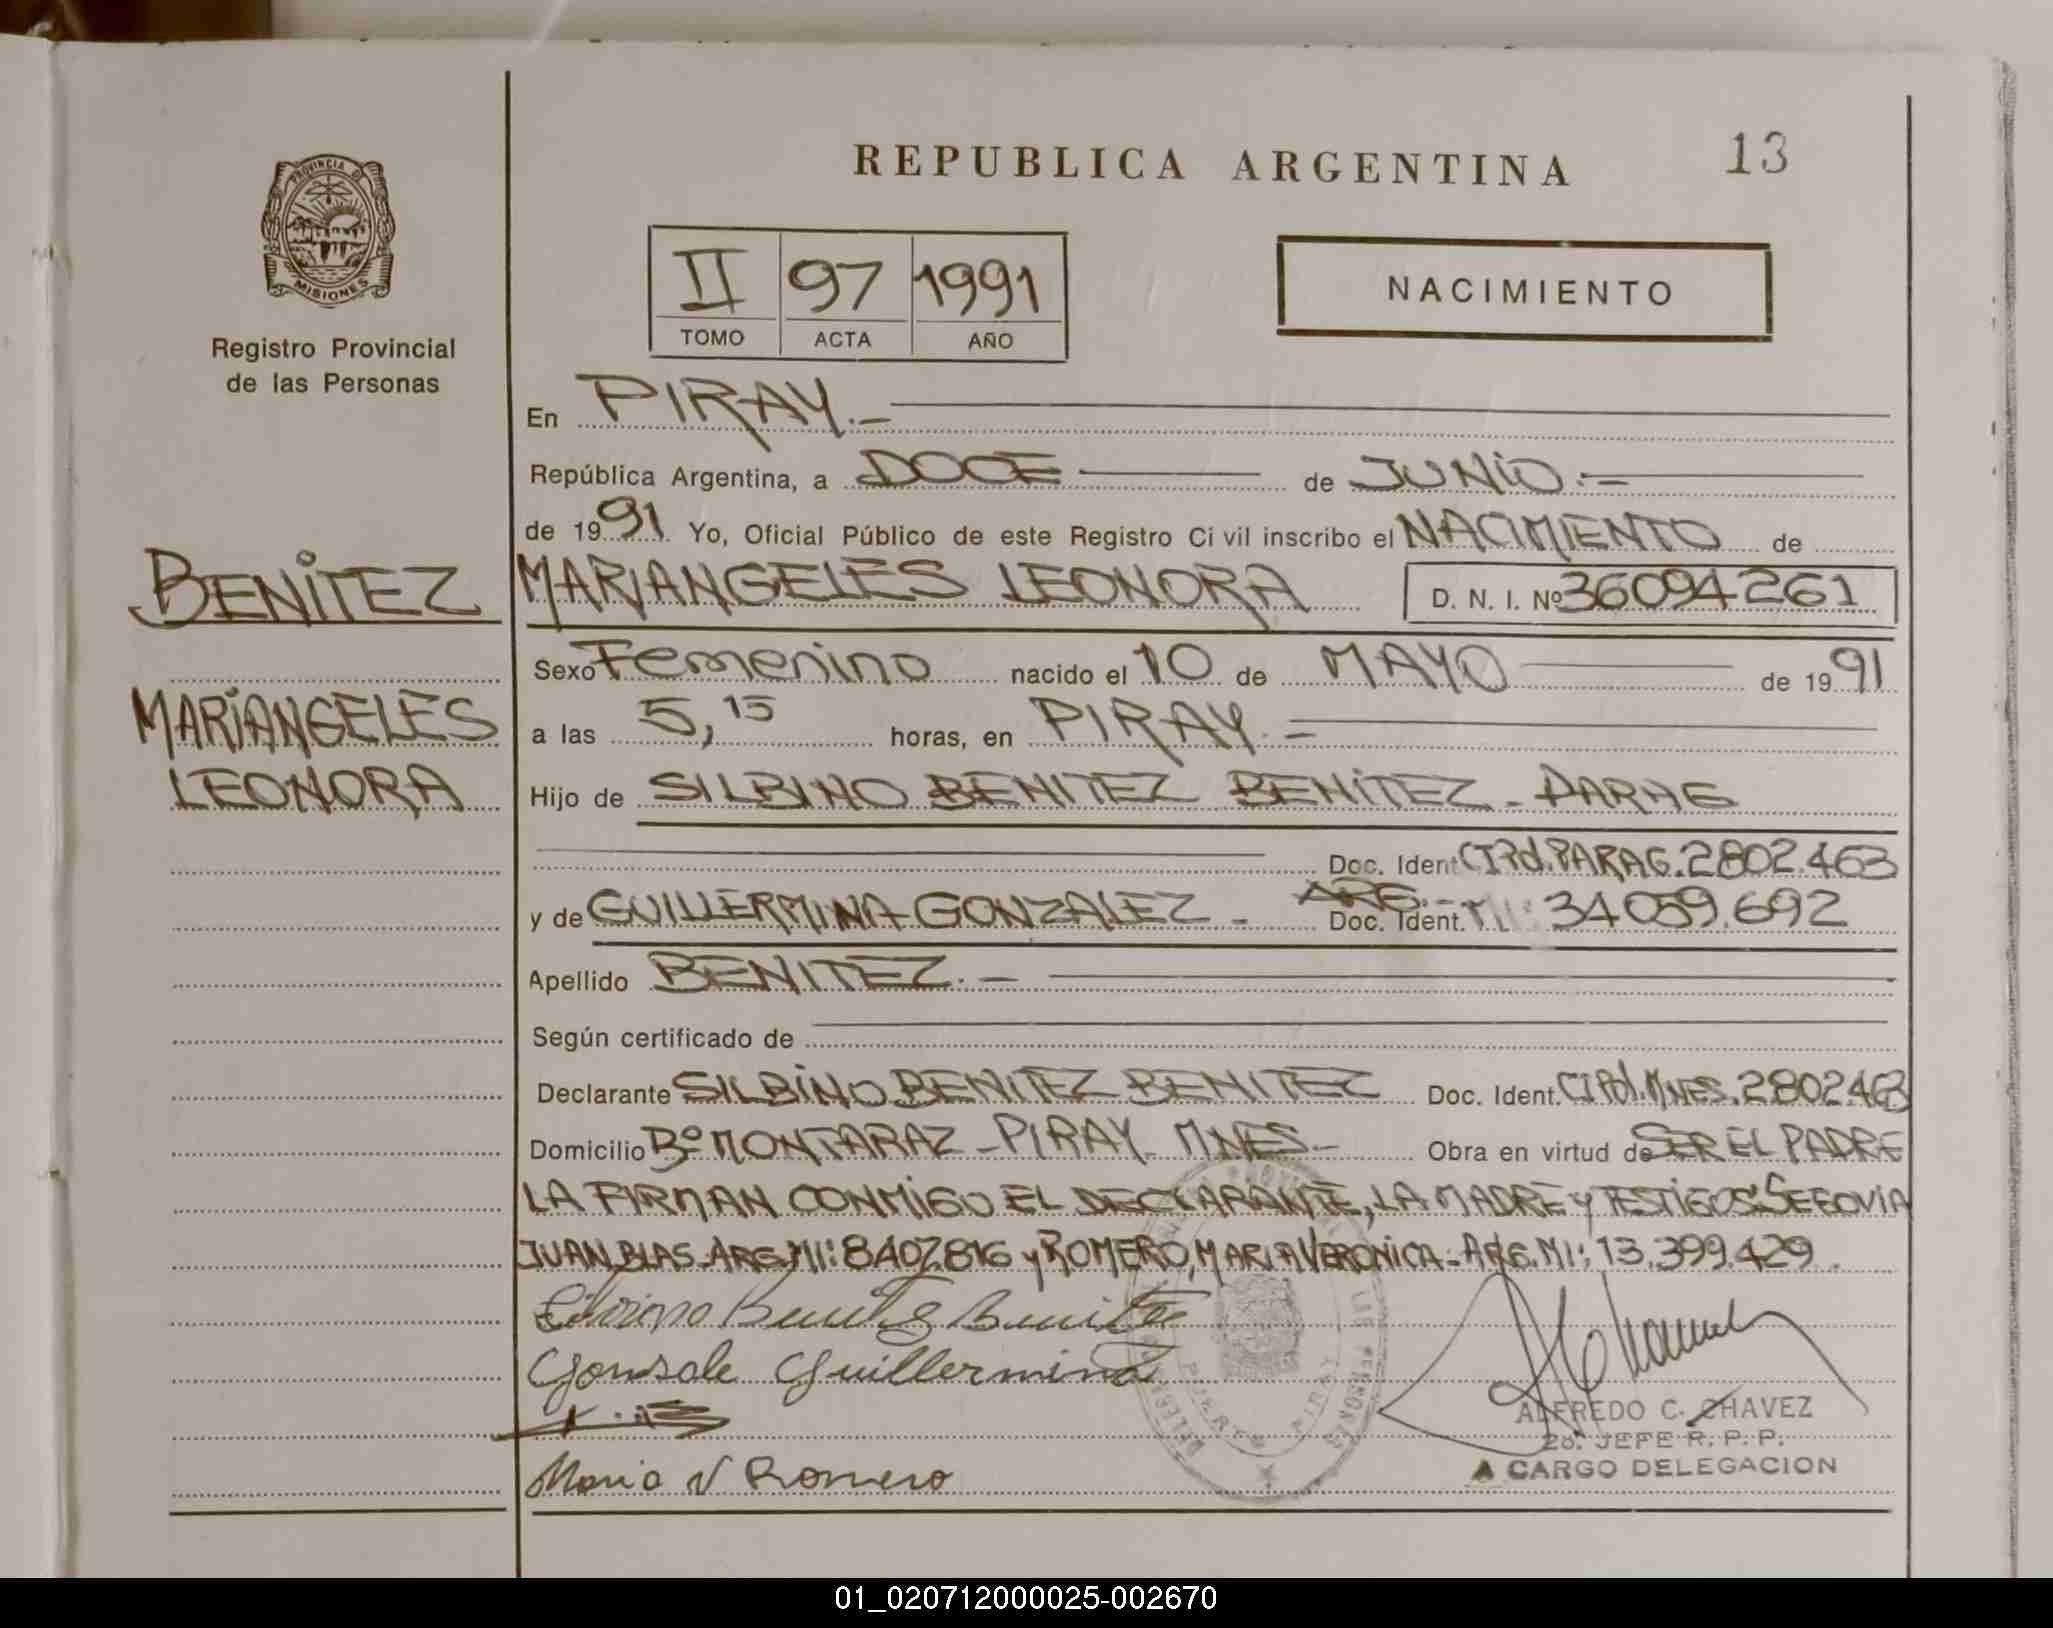 REPUBLICA ARGENTINA
13
PROVINCIA DE
MISIONES
Registro Provincial
de las Personas
II 97 1991
TOMO ACTA AÑO
NACIMIENTO
En PIRAY.-
República Argentina, a DOCE de JUNIO.-
de 1991 Yo, Oficial Público de este Registro Civil inscribo el NACIMIENTO de
BENITEZ
MARIANGELES LEONORA D. N. I. Nº 36094261
Sexo Femenino nacido el 10 de MAYO de 1991
MARIANGELES
a las 5,15 horas, en PIRAY.-
LEONORA
Hijo de SILBINO BENITEZ BENITEZ - PARAG
Doc. Ident. CIPol.PARAG.2802.463
y de GUILLERMINA GONZALEZ - ARG.- Doc. Ident. MI: 34059.692
Apellido BENITEZ.-
Según certificado de
Declarante SILBINO BENITEZ BENITEZ Doc. Ident. CIPol.MNES.2802.463
Domicilio Bº MONTARAZ - PIRAY - MNES- Obra en virtud de SER EL PADRE
LA FIRMAN CONMIGO EL DECLARANTE, LA MADRE y TESTIGOS: SEGOVIA
JUAN BLAS-ARG.MI: 8407.816 y ROMERO, MARIA VERONICA-ARG.MI: 13.399.429.
Silvino Benitez Benitez
Gonsale Guillermina
Maria V Romero
ALFREDO C. CHAVEZ
2o. JEFE R. P. P.
A CARGO DELEGACION
01_020712000025-002670